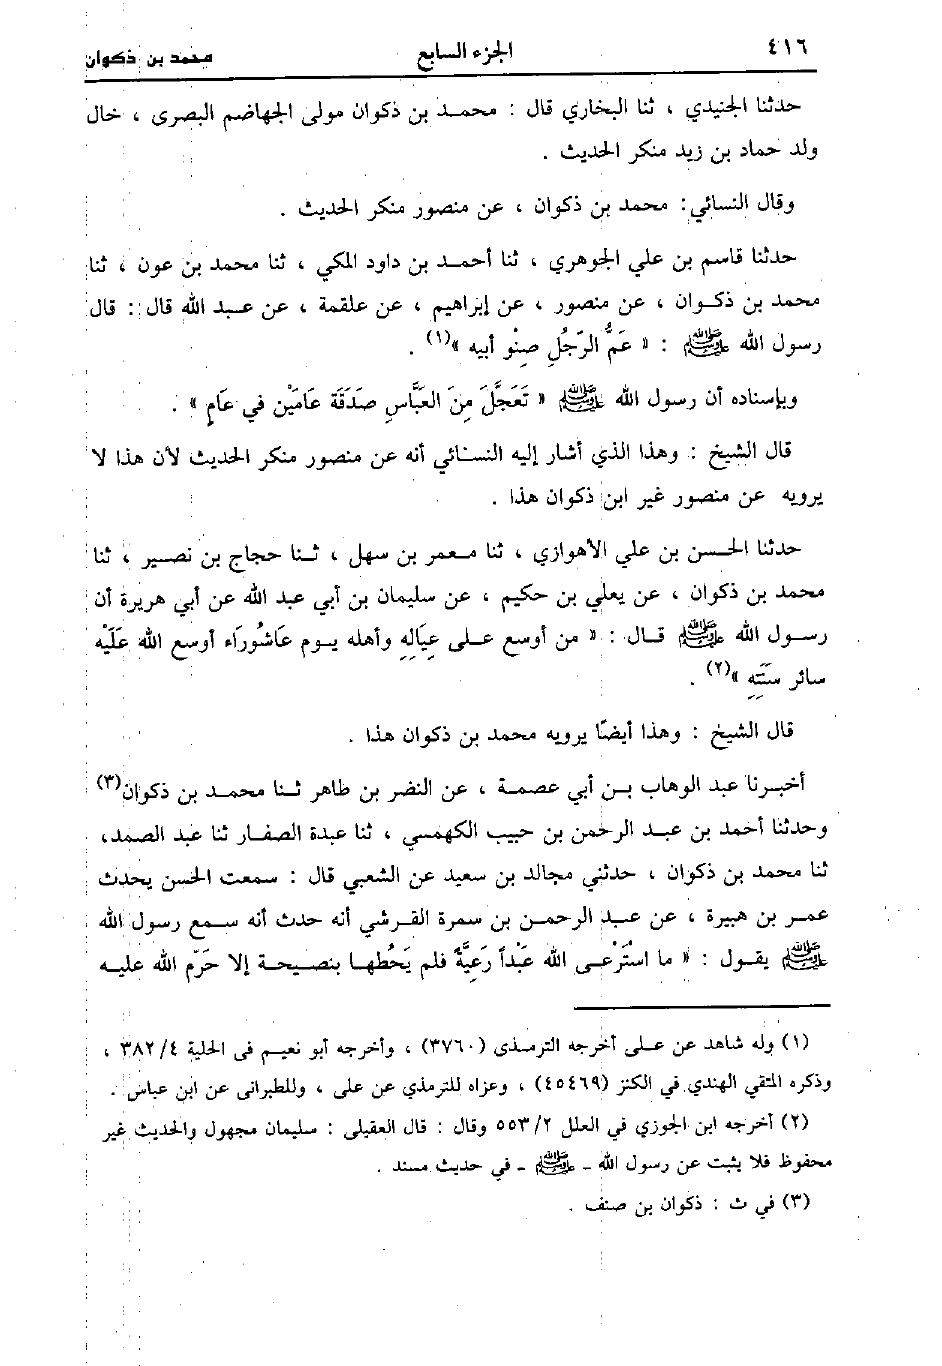 ٤١٦ الجزء السابع محمد بن ذكوان
حدثنا الجنيدي ، ثنا البخاري قال : محمد بن ذكوان مولى الجهاضم البصرى ، خال
ولد حماد بن زيد منكر الحديث .
وقال النسائي : محمد بن ذكوان ، عن منصور منكر الحديث .
حدثنا قاسم بن علي الجوهري ، ثنا أحمد بن داود المكي ، ثنا محمد بن عون ، ثنا
محمد بن ذكوان ، عن منصور ، عن إبراهيم ، عن علقمة ، عن عبد الله قال : قال
رسول الله ﷺ : « عَمُّ الرّجُلِ صِنْو أبيه »(١) .
وبإسناده أن رسول الله ﷺ « تَعَجَّلَ مِنَ العَبَّاسِ صَدَقَة عَامَيْن في عَامٍ » .
قال الشيخ : وهذا الذي أشار إليه النسائي أنه عن منصور منكر الحديث لأن هذا لا
يرويه عن منصور غير ابن ذكوان هذا .
حدثنا الحسن بن علي الأهوازي ، ثنا معمر بن سهل ، ثنا حجاج بن نصير ، ثنا
محمد بن ذكوان ، عن يعلي بن حكيم ، عن سليمان بن أبي عبد الله عن أبي هريرة أن
رسول الله ﷺ قال : « من أوسع على عِيَالِهِ وأهله يوم عَاشُورَاء أوسع الله عَلَيْه
سائر سَنَتِهِ »(٢) .
قال الشيخ : وهذا أيضًا يرويه محمد بن ذكوان هذا .
أخبرنا عبد الوهاب بن أبي عصمة ، عن النضر بن طاهر ثنا محمد بن ذكوان(٣)
وحدثنا أحمد بن عبد الرحمن بن حبيب الكهمسي ، ثنا عبدة الصفار ثنا عبد الصمد،
ثنا محمد بن ذكوان ، حدثني مجالد بن سعيد عن الشعبي قال : سمعت الحسن يحدث
عمر بن هبيرة ، عن عبد الرحمن بن سمرة القرشي أنه حدث أنه سمع رسول الله
ﷺ يقول : « ما اسْتُرْعى الله عَبْداً رَعِيَّةً فلم يَحُطها بنصيحة إلا حَرّم الله عليه
(١) وله شاهد عن على أخرجه الترمذى (٣٧٦٠) ، وأخرجه أبو نعيم فى الحلية ٣٨٢/٤ ،
وذكره المتقي الهندي في الكنز (٤٥٤٦٩) ، وعزاه للترمذي عن على ، وللطبرانى عن ابن عباس .
(٢) أخرجه ابن الجوزي في العلل ٥٥٣/٢ وقال : قال العقيلى : سليمان مجهول والحديث غير
محفوظ فلا يثبت عن رسول الله - ﷺ - في حديث مسند .
(٣) في ث : ذكوان بن صنف .